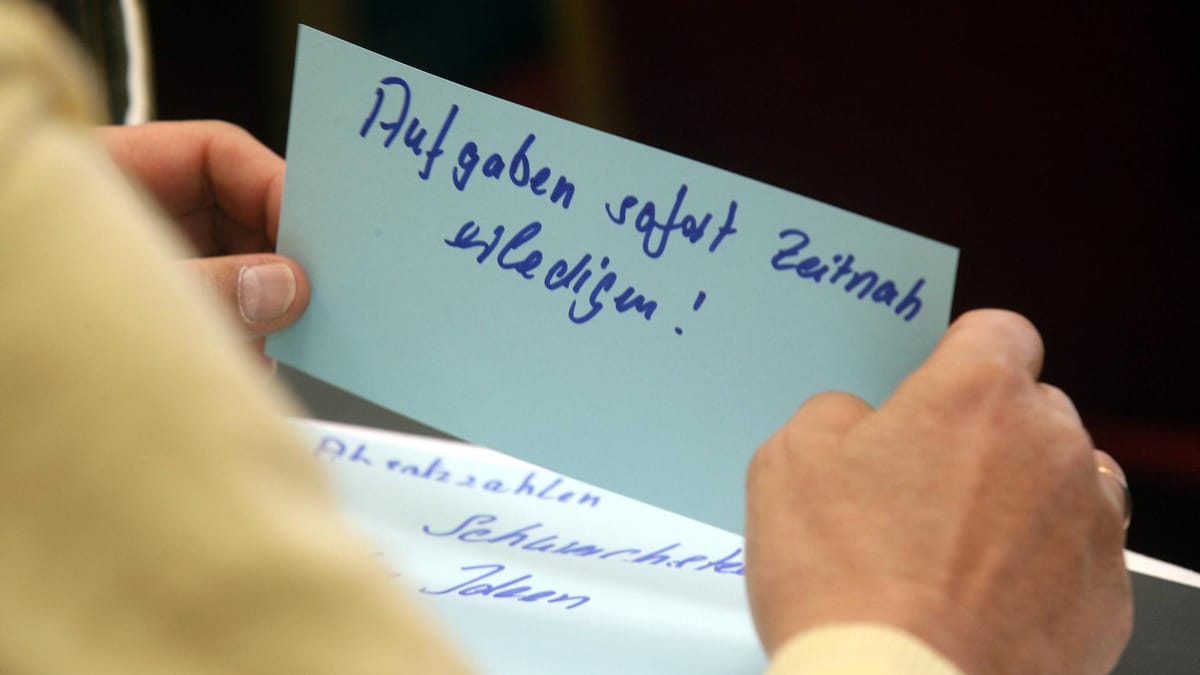 Aufgaben sofort Zeitnah
erledigen!
Absatzzahlen
Ideen